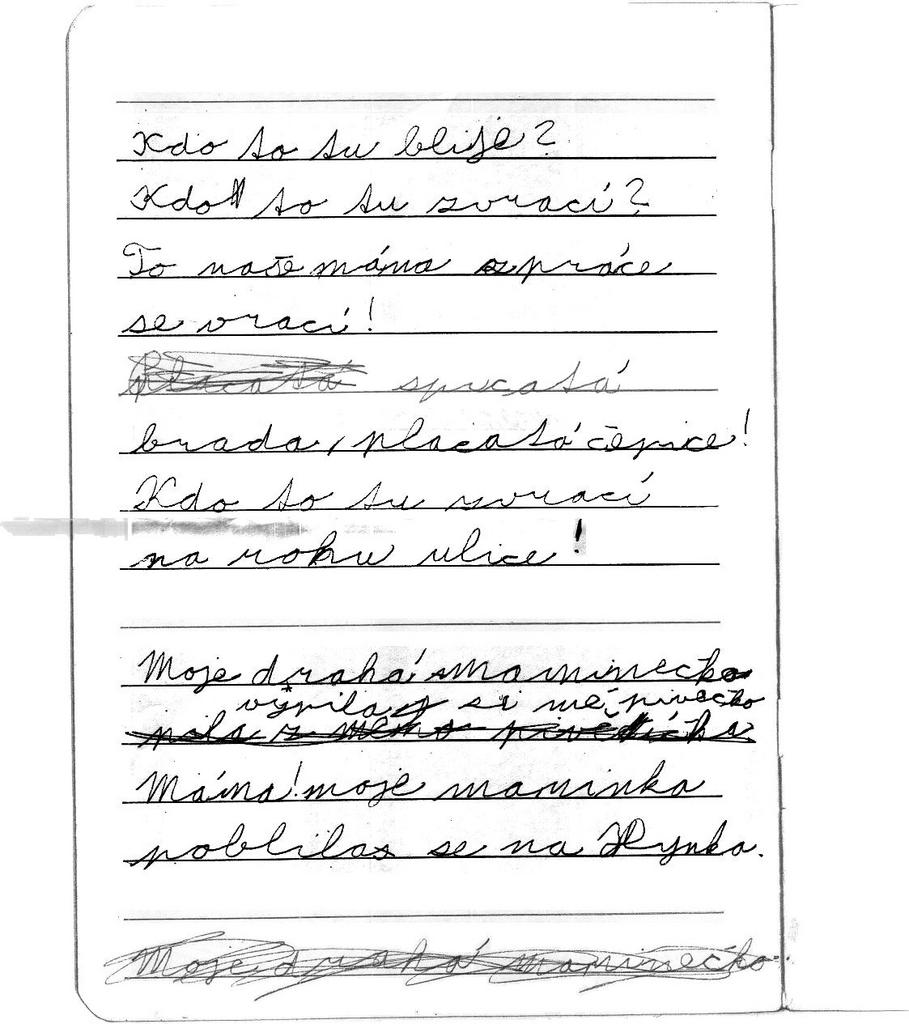 Kdo to tu blije?
Kdo to tu zvrací?
To naše máma z práce
se vrací!
Placatá špicatá
brada, placatá čepice!
Kdo to tu zvrací
na rohu ulice!
Moje drahá Maminečko
vypila si mé pivečko
pila z mého
Máma! moje maminka
poblila se na Hynka.
Moje drahá maminečko